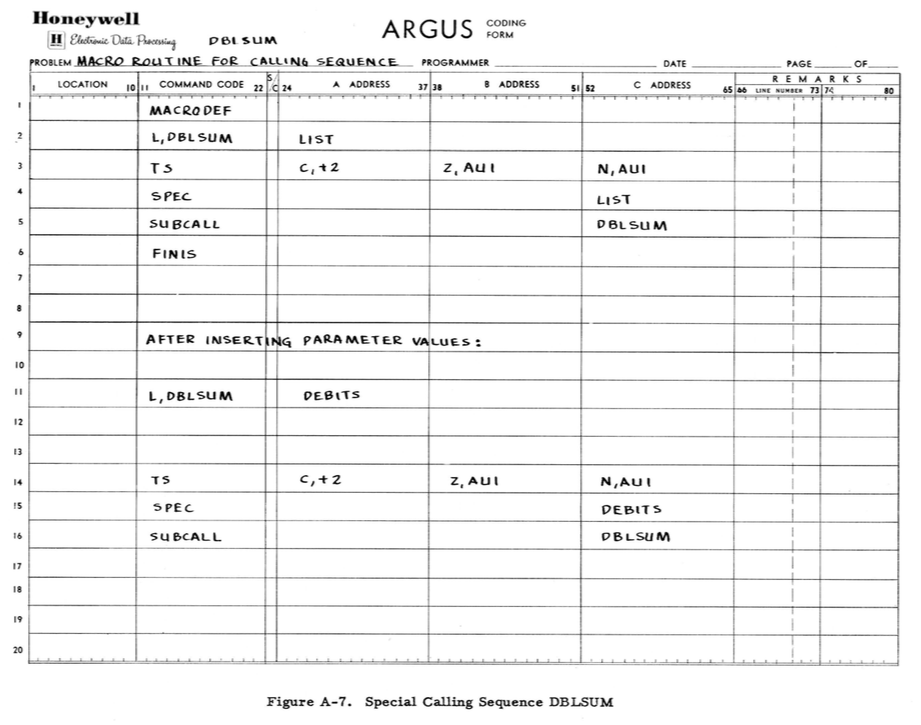 Honeywell
H Electronic Data Processing DBLSUM
ARGUS CODING FORM
PROBLEM MACRO ROUTINE FOR CALLING SEQUENCE PROGRAMMER DATE PAGE OF
LOCATION COMMAND CODE S/C A ADDRESS B ADDRESS C ADDRESS REMARKS
1 10 11 22 24 37 38 51 52 65 66 LINE NUMBER 73 74 80
1 MACRODEF
2 L,DBLSUM LIST
3 TS C,+2 Z,AU1 N,AU1
4 SPEC LIST
5 SUBCALL DBLSUM
6 FINIS
7
8
9 AFTER INSERTING PARAMETER VALUES:
10
11 L,DBLSUM DEBITS
12
13
14 TS C,+2 Z,AU1 N,AU1
15 SPEC DEBITS
16 SUBCALL DBLSUM
17
18
19
20
Figure A-7. Special Calling Sequence DBLSUM